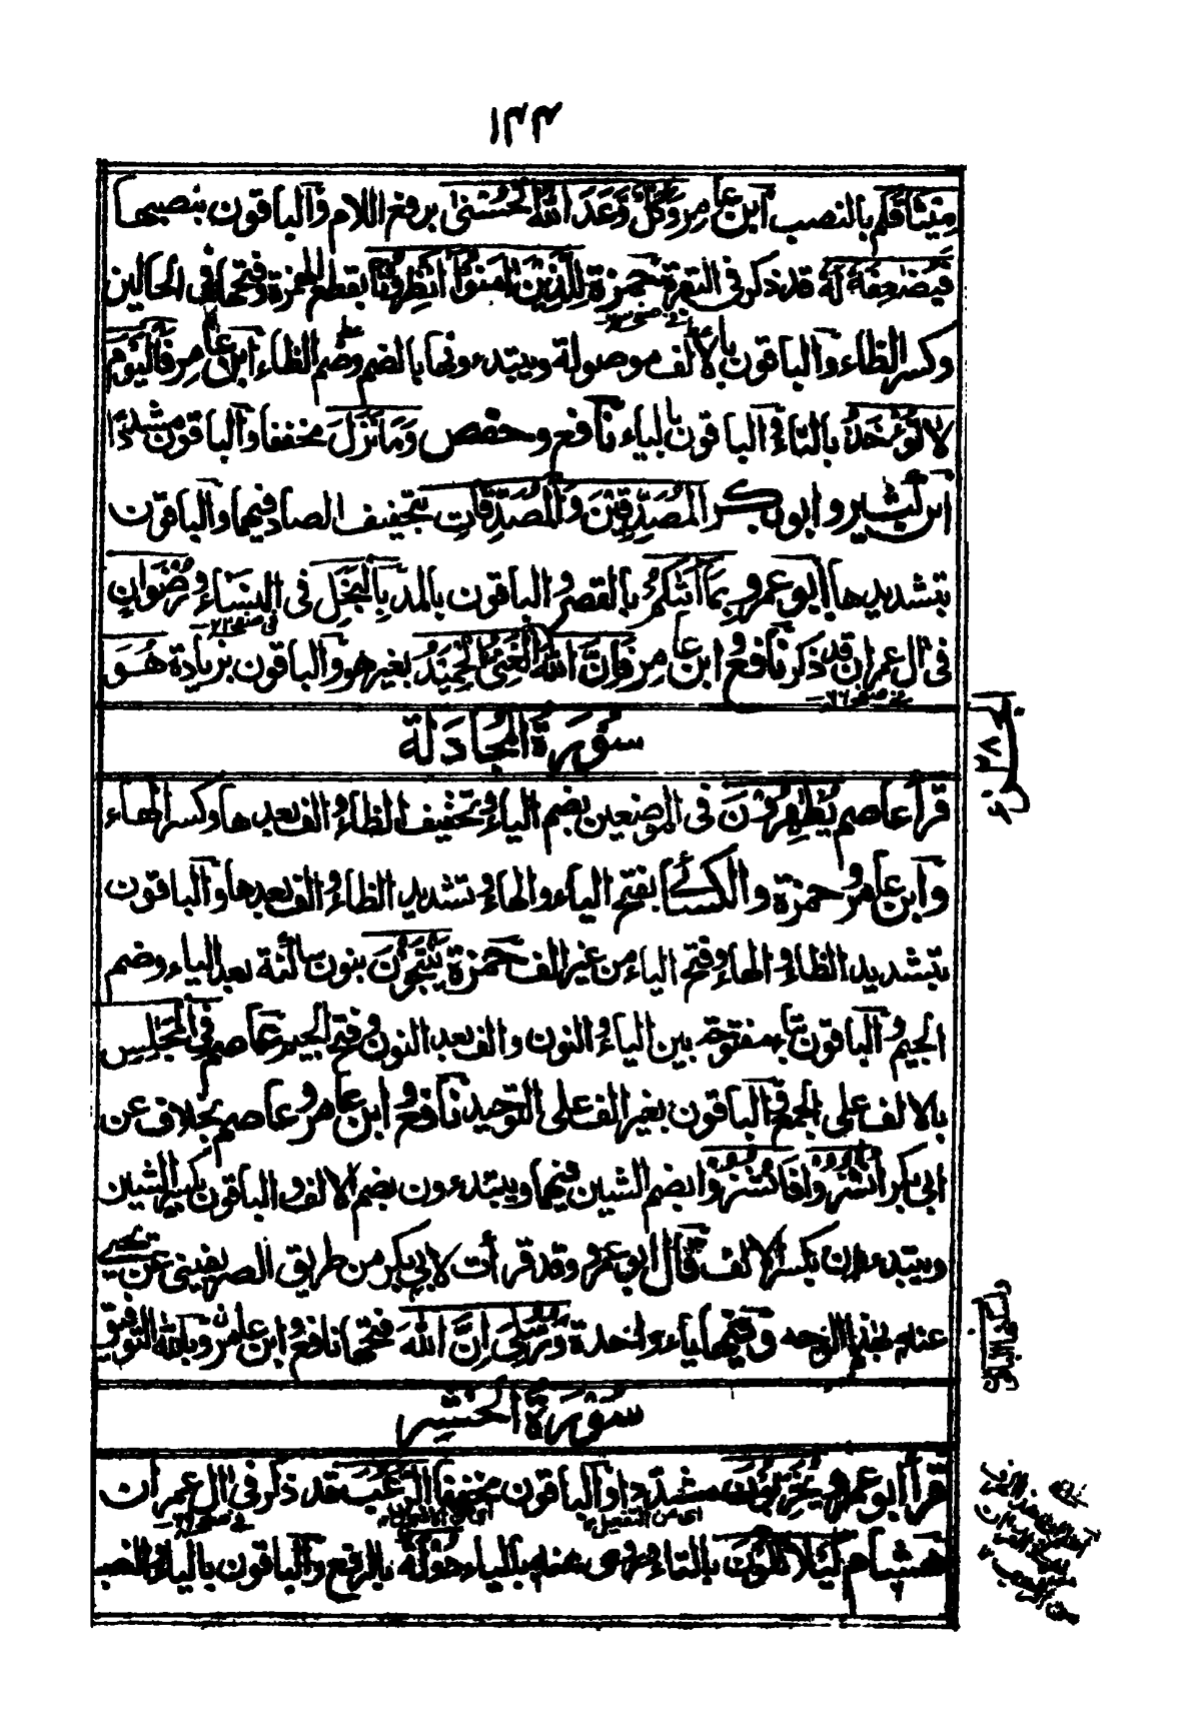 ١٣٣
مِيثَاقَكُم بالنصب ابن عامر وَكُلٌّ وَعَدَ اللهُ الْحُسْنٰى برفع اللام والباقون بنصبها
فَيُضٰعِفَهٗ لَهٗ قد ذكر فى البقرة حمزة لِلَّذِيْنَ اٰمَنُوْا اَنْظِرُوْنَا بقطع الهمزة وفتحها فى الحالين
وكسر الظاء والباقون بالالف موصولة ويبتدءونها بالضم وضم الظاء ابن عامر فَالْيَوْمَ
لا تُؤْخَذُ بالتاء والباقون بالياء نافع وحفص وَمَا نَزَلَ مخففا والباقون مشددا
ابن كثير وابوبكر الْمُصَدِّقِيْنَ وَالْمُصَدِّقَاتِ بتخفيف الصاد فيهما والباقون
بتشديدها ابو عمرو بِمَا اَتٰكُمْ بالقصر والباقون بالمد بِالْبُخْلِ فى النساء وَرِضْوَانٍ
فى ال عمران قد ذكر نافع وابن عامر فَاِنَّ اللهَ الْغَنِيُّ الْحَمِيْدُ بغير هو والباقون بزيادة هُوَ
سُوْرَةُ الْمُجَادَلَة
قرأ عاصم يُظٰهِرُوْنَ فى الموضعين بضم الياء وتخفيف الظاء والف بعدها وكسر الهاء
وابن عامر وحمزة والكسائى بفتح الياء والهاء وتشديد الظاء والف بعدها والباقون
بتشديد الظاء والهاء وفتح الياء من غير الف حمزة يَنْتَجُوْنَ بنون ساكنة بعد الياء وضم
الجيم والباقون بتاء مفتوحة بين الياء والنون والف بعد النون وفتح الجيم عاصم فِى الْمَجٰلِسِ
بالالف على الجمع والباقون بغير الف على التوحيد نافع وابن عامر وعاصم بخلاف عن
ابى بكر اُنْشُزُوْا فَانْشُزُوْا بضم الشين فيهما ويبتدءون بضم الالف والباقون بكسر الشين
ويبتدءون بكسر الالف قال ابو عمرو وقد قرأت لابى بكر من طريق الصريفينى عن يحيى
عنه بهذا الوجه وفيها ياء واحدة وَرُسُلِى اِنَّ اللهَ فتحها نافع وابن عامر وبالله التوفيق
سُوْرَةُ الْحَشْرِ
قرأ ابو عمرو يُخَرِّبُوْنَ مشددا والباقون مخففا الرُّعْبَ قد ذكر فى ال عمران
هشام كَيْلَا تَكُوْنَ بالتاء وروى عنه بالياء دُوْلَةٌ بالرفع والباقون بالياء والنصب